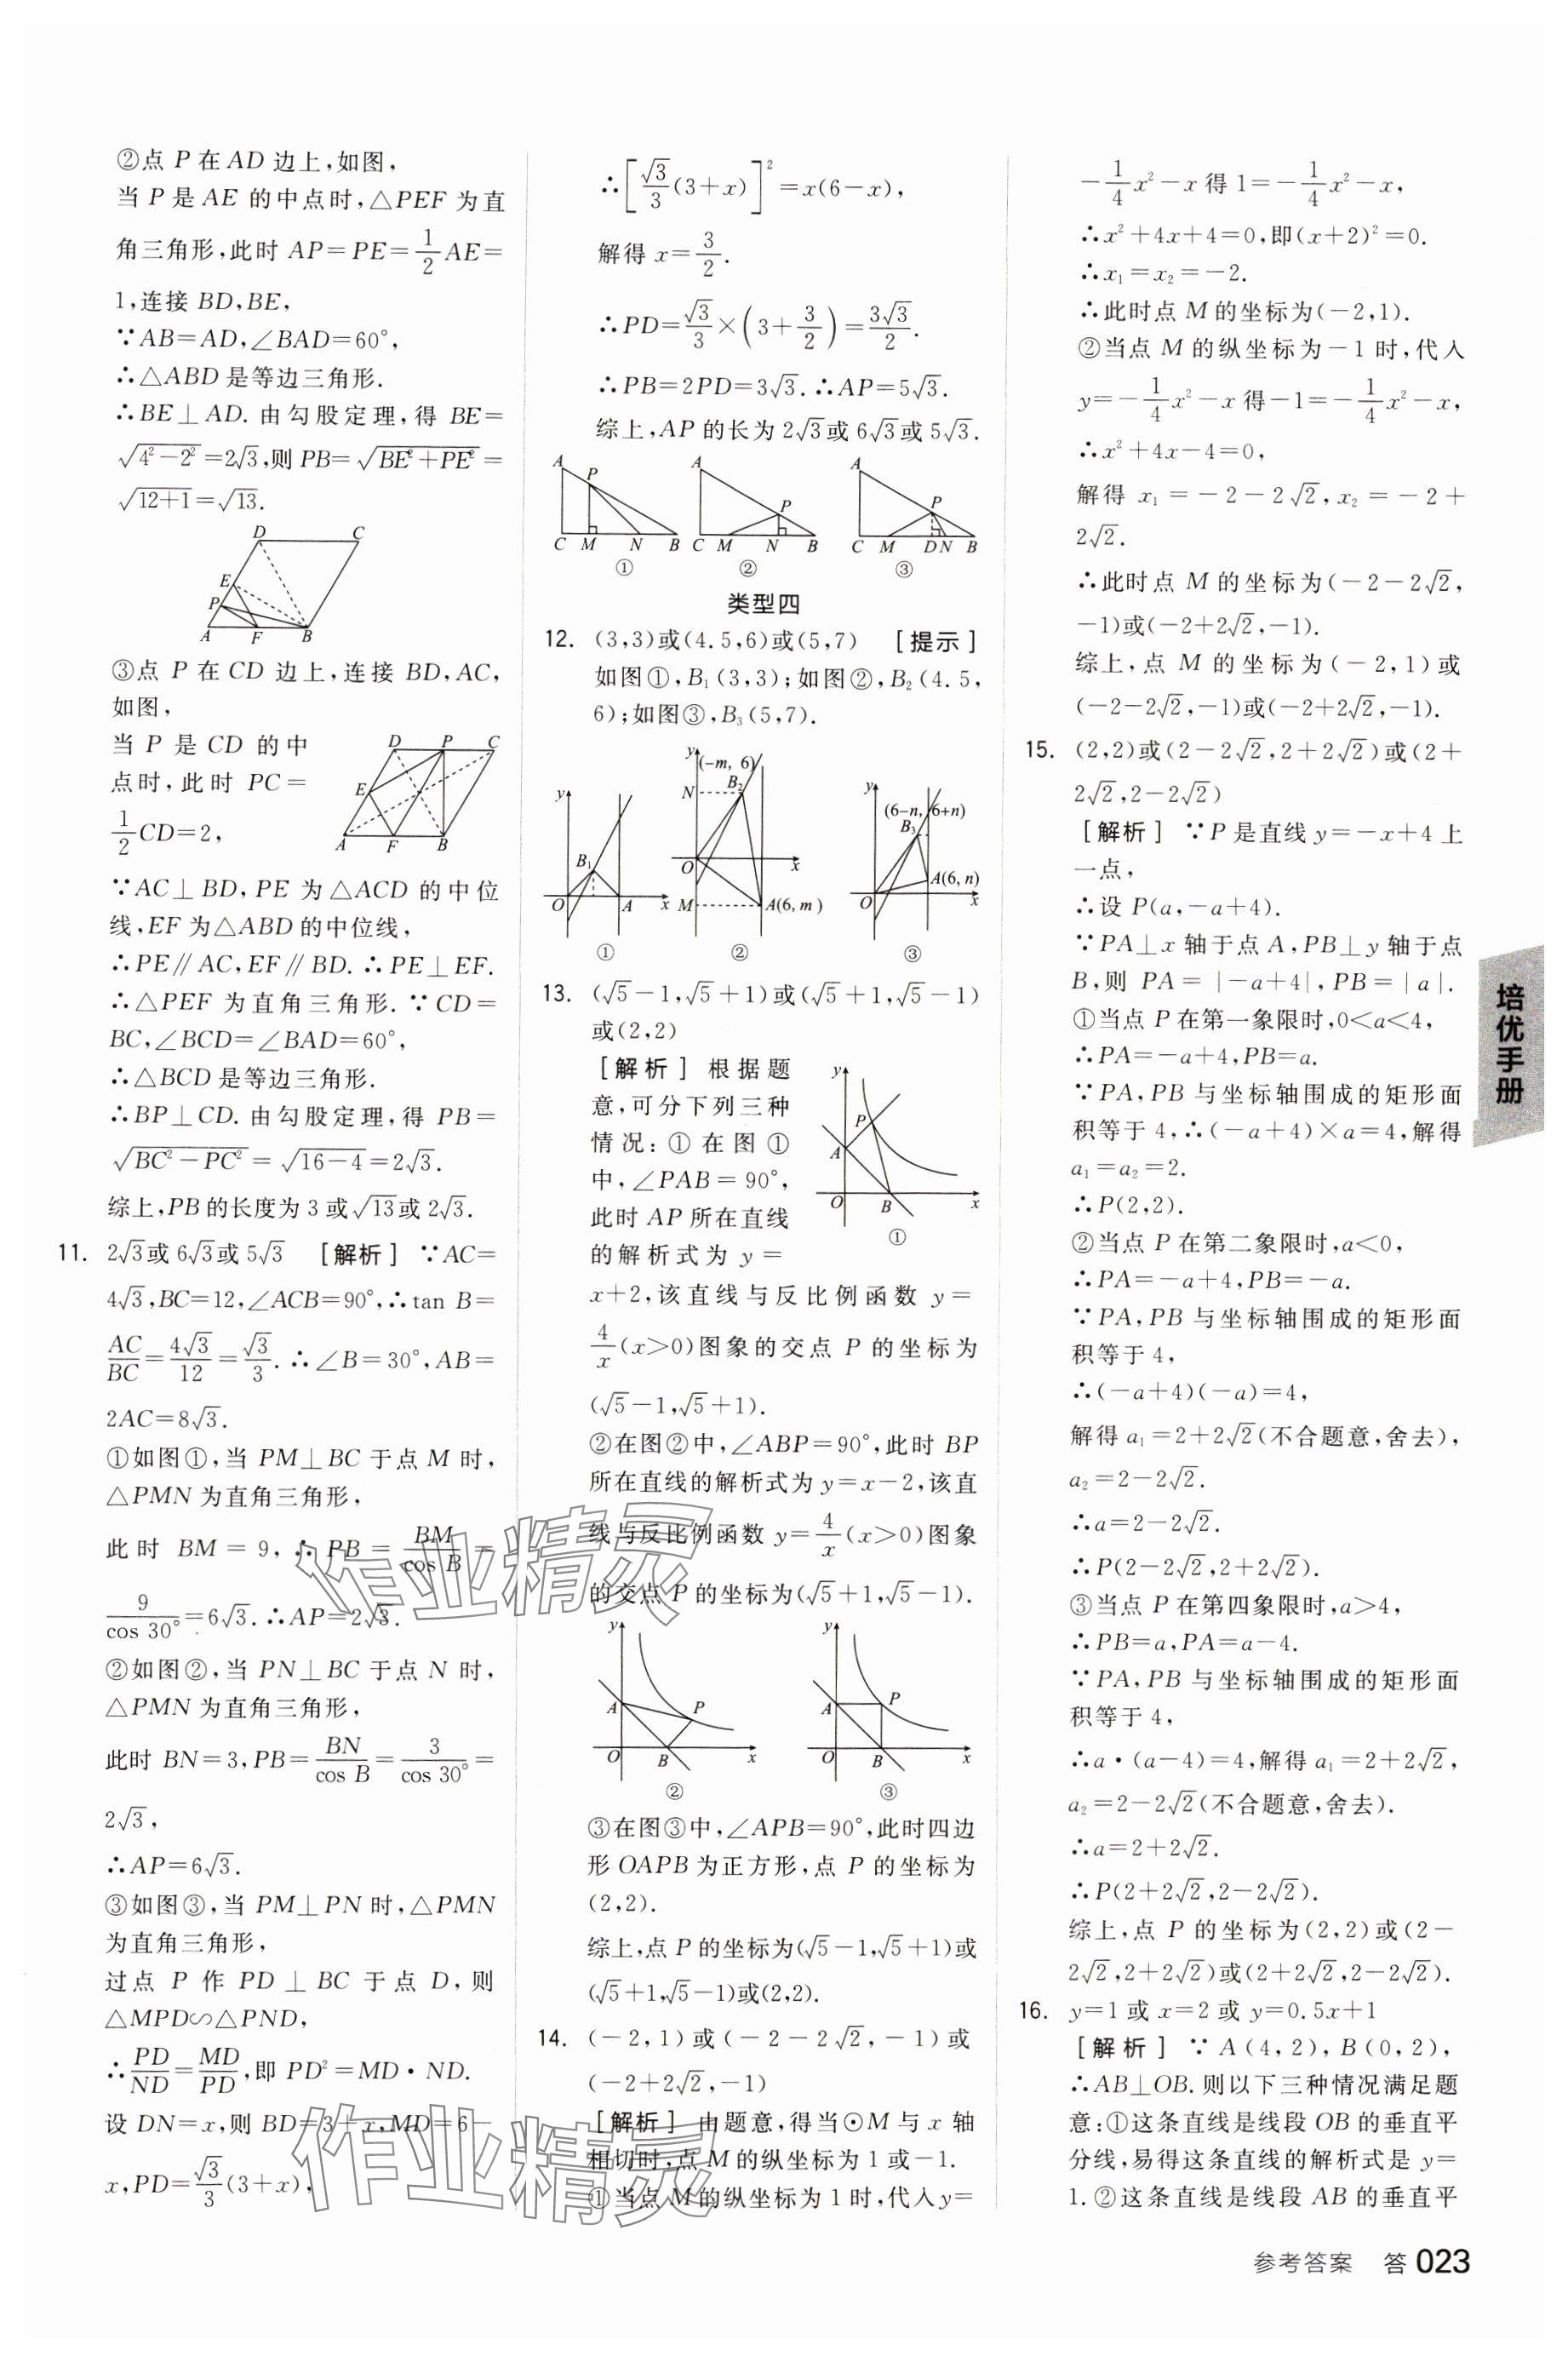 ②点 P 在 AD 边上,如图,
当 P 是 AE 的中点时,△PEF 为直
角三角形,此时 AP=PE=1/2 AE=
1,连接 BD,BE,
∵AB=AD,∠BAD=60°,
∴△ABD 是等边三角形.
∴BE⊥AD. 由勾股定理,得 BE=
√(4²-2²)=2√3,则 PB=√(BE²+PE²)=
√(12+1)=√13.
D C
E
P
A F B
③点 P 在 CD 边上,连接 BD,AC,
如图,
当 P 是 CD 的中
点时,此时 PC=
1/2 CD=2,
D P C
E
A F B
∵AC⊥BD,PE 为△ACD 的中位
线,EF 为△ABD 的中位线,
∴PE∥AC,EF∥BD. ∴PE⊥EF.
∴△PEF 为直角三角形. ∵CD=
BC,∠BCD=∠BAD=60°,
∴△BCD 是等边三角形.
∴BP⊥CD. 由勾股定理,得 PB=
√(BC²-PC²)=√(16-4)=2√3.
综上,PB 的长度为 3 或√13或 2√3.
11. 2√3或 6√3或 5√3 [解析] ∵AC=
4√3,BC=12,∠ACB=90°,∴tan B=
AC/BC=4√3/12=√3/3. ∴∠B=30°,AB=
2AC=8√3.
①如图①,当 PM⊥BC 于点 M 时,
△PMN 为直角三角形,
此时 BM=9,∴PB=BM/cos B=
9/cos 30°=6√3. ∴AP=2√3.
②如图②,当 PN⊥BC 于点 N 时,
△PMN 为直角三角形,
此时 BN=3,PB=BN/cos B=3/cos 30°=
2√3,
∴AP=6√3.
③如图③,当 PM⊥PN 时,△PMN
为直角三角形,
过点 P 作 PD⊥BC 于点 D,则
△MPD∽△PND,
∴PD/ND=MD/PD,即 PD²=MD·ND.
设 DN=x,则 BD=3+x,MD=6-
x,PD=√3/3(3+x),
∴[√3/3(3+x)]²=x(6-x),
解得 x=3/2.
∴PD=√3/3×(3+3/2)=3√3/2.
∴PB=2PD=3√3. ∴AP=5√3.
综上,AP 的长为 2√3或 6√3或 5√3.
A P C M N B ①
A P C M N B ②
A P C M D N B ③
类型四
12. (3,3)或(4.5,6)或(5,7) [提示]
如图①,B₁(3,3);如图②,B₂(4.5,
6);如图③,B₃(5,7).
y B₁ O A x ①
y (-m, 6) N B₂ O x M A(6,m) ②
y (6-n, 6+n) B₃ A(6,n) O x ③
13. (√5-1,√5+1)或(√5+1,√5-1)
或(2,2)
[解析] 根据题
意,可分下列三种
情况:①在图①
中,∠PAB=90°,
此时 AP 所在直线
的解析式为 y=
y P A O B x ①
x+2,该直线与反比例函数 y=
4/x(x>0)图象的交点 P 的坐标为
(√5-1,√5+1).
②在图②中,∠ABP=90°,此时 BP
所在直线的解析式为 y=x-2,该直
线与反比例函数 y=4/x(x>0)图象
的交点 P 的坐标为(√5+1,√5-1).
y A P O B x ②
y A P O B x ③
③在图③中,∠APB=90°,此时四边
形 OAPB 为正方形,点 P 的坐标为
(2,2).
综上,点 P 的坐标为(√5-1,√5+1)或
(√5+1,√5-1)或(2,2).
14. (-2,1)或(-2-2√2,-1)或
(-2+2√2,-1)
[解析] 由题意,得当⊙M 与 x 轴
相切时,点 M 的纵坐标为 1 或-1.
①当点 M 的纵坐标为 1 时,代入 y=
-1/4x²-x 得 1=-1/4x²-x,
∴x²+4x+4=0,即(x+2)²=0.
∴x₁=x₂=-2.
∴此时点 M 的坐标为(-2,1).
②当点 M 的纵坐标为-1 时,代入
y=-1/4x²-x 得-1=-1/4x²-x,
∴x²+4x-4=0,
解得 x₁=-2-2√2,x₂=-2+
2√2.
∴此时点 M 的坐标为(-2-2√2,
-1)或(-2+2√2,-1).
综上,点 M 的坐标为(-2,1)或
(-2-2√2,-1)或(-2+2√2,-1).
15. (2,2)或(2-2√2,2+2√2)或(2+
2√2,2-2√2)
[解析] ∵P 是直线 y=-x+4 上
一点,
∴设 P(a,-a+4).
∵PA⊥x 轴于点 A,PB⊥y 轴于点
B,则 PA=|-a+4|,PB=|a|.
①当点 P 在第一象限时,0<a<4,
∴PA=-a+4,PB=a.
∵PA,PB 与坐标轴围成的矩形面
积等于 4,∴(-a+4)×a=4,解得
a₁=a₂=2.
∴P(2,2).
②当点 P 在第二象限时,a<0,
∴PA=-a+4,PB=-a.
∵PA,PB 与坐标轴围成的矩形面
积等于 4,
∴(-a+4)(-a)=4,
解得 a₁=2+2√2(不合题意,舍去),
a₂=2-2√2.
∴a=2-2√2.
∴P(2-2√2,2+2√2).
③当点 P 在第四象限时,a>4,
∴PB=a,PA=a-4.
∵PA,PB 与坐标轴围成的矩形面
积等于 4,
∴a·(a-4)=4,解得 a₁=2+2√2,
a₂=2-2√2(不合题意,舍去).
∴a=2+2√2.
∴P(2+2√2,2-2√2).
综上,点 P 的坐标为(2,2)或(2-
2√2,2+2√2)或(2+2√2,2-2√2).
16. y=1 或 x=2 或 y=0.5x+1
[解析] ∵A(4,2),B(0,2),
∴AB⊥OB. 则以下三种情况满足题
意:①这条直线是线段 OB 的垂直平
分线,易得这条直线的解析式是 y=
1. ②这条直线是线段 AB 的垂直平
培优手册
作业精灵
作业精灵
参考答案 答 023